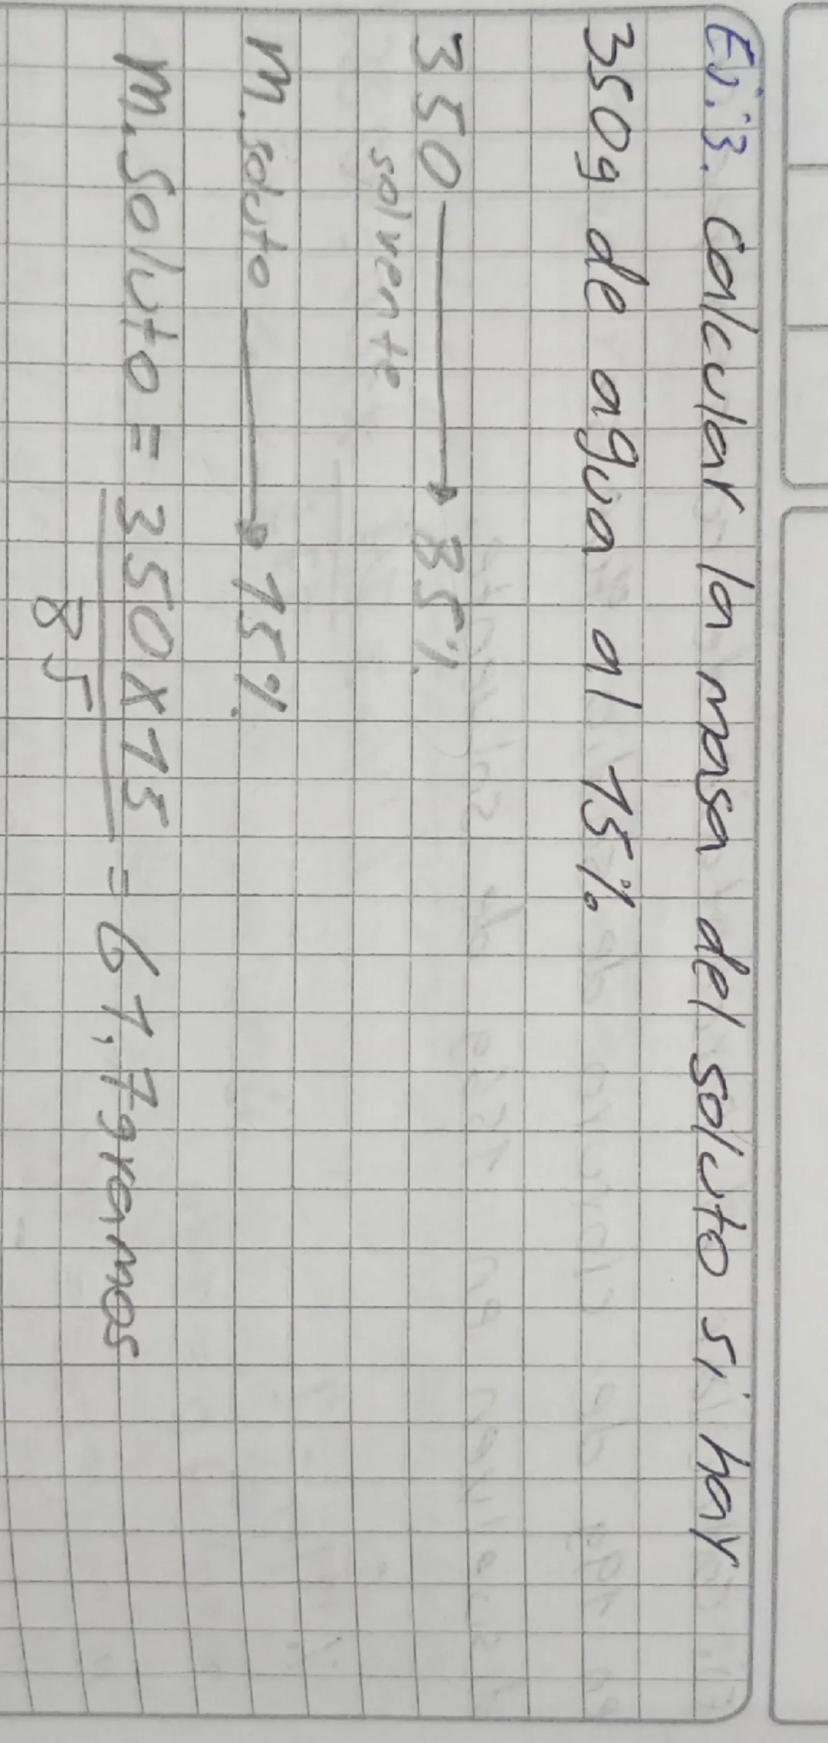 Ej:3. Calcular la masa del soluto si hay
350g de agua al 15%
350 → 85%
solvente
m.soluto → 15%
m.soluto = 350x15 = 61,7gramos
85